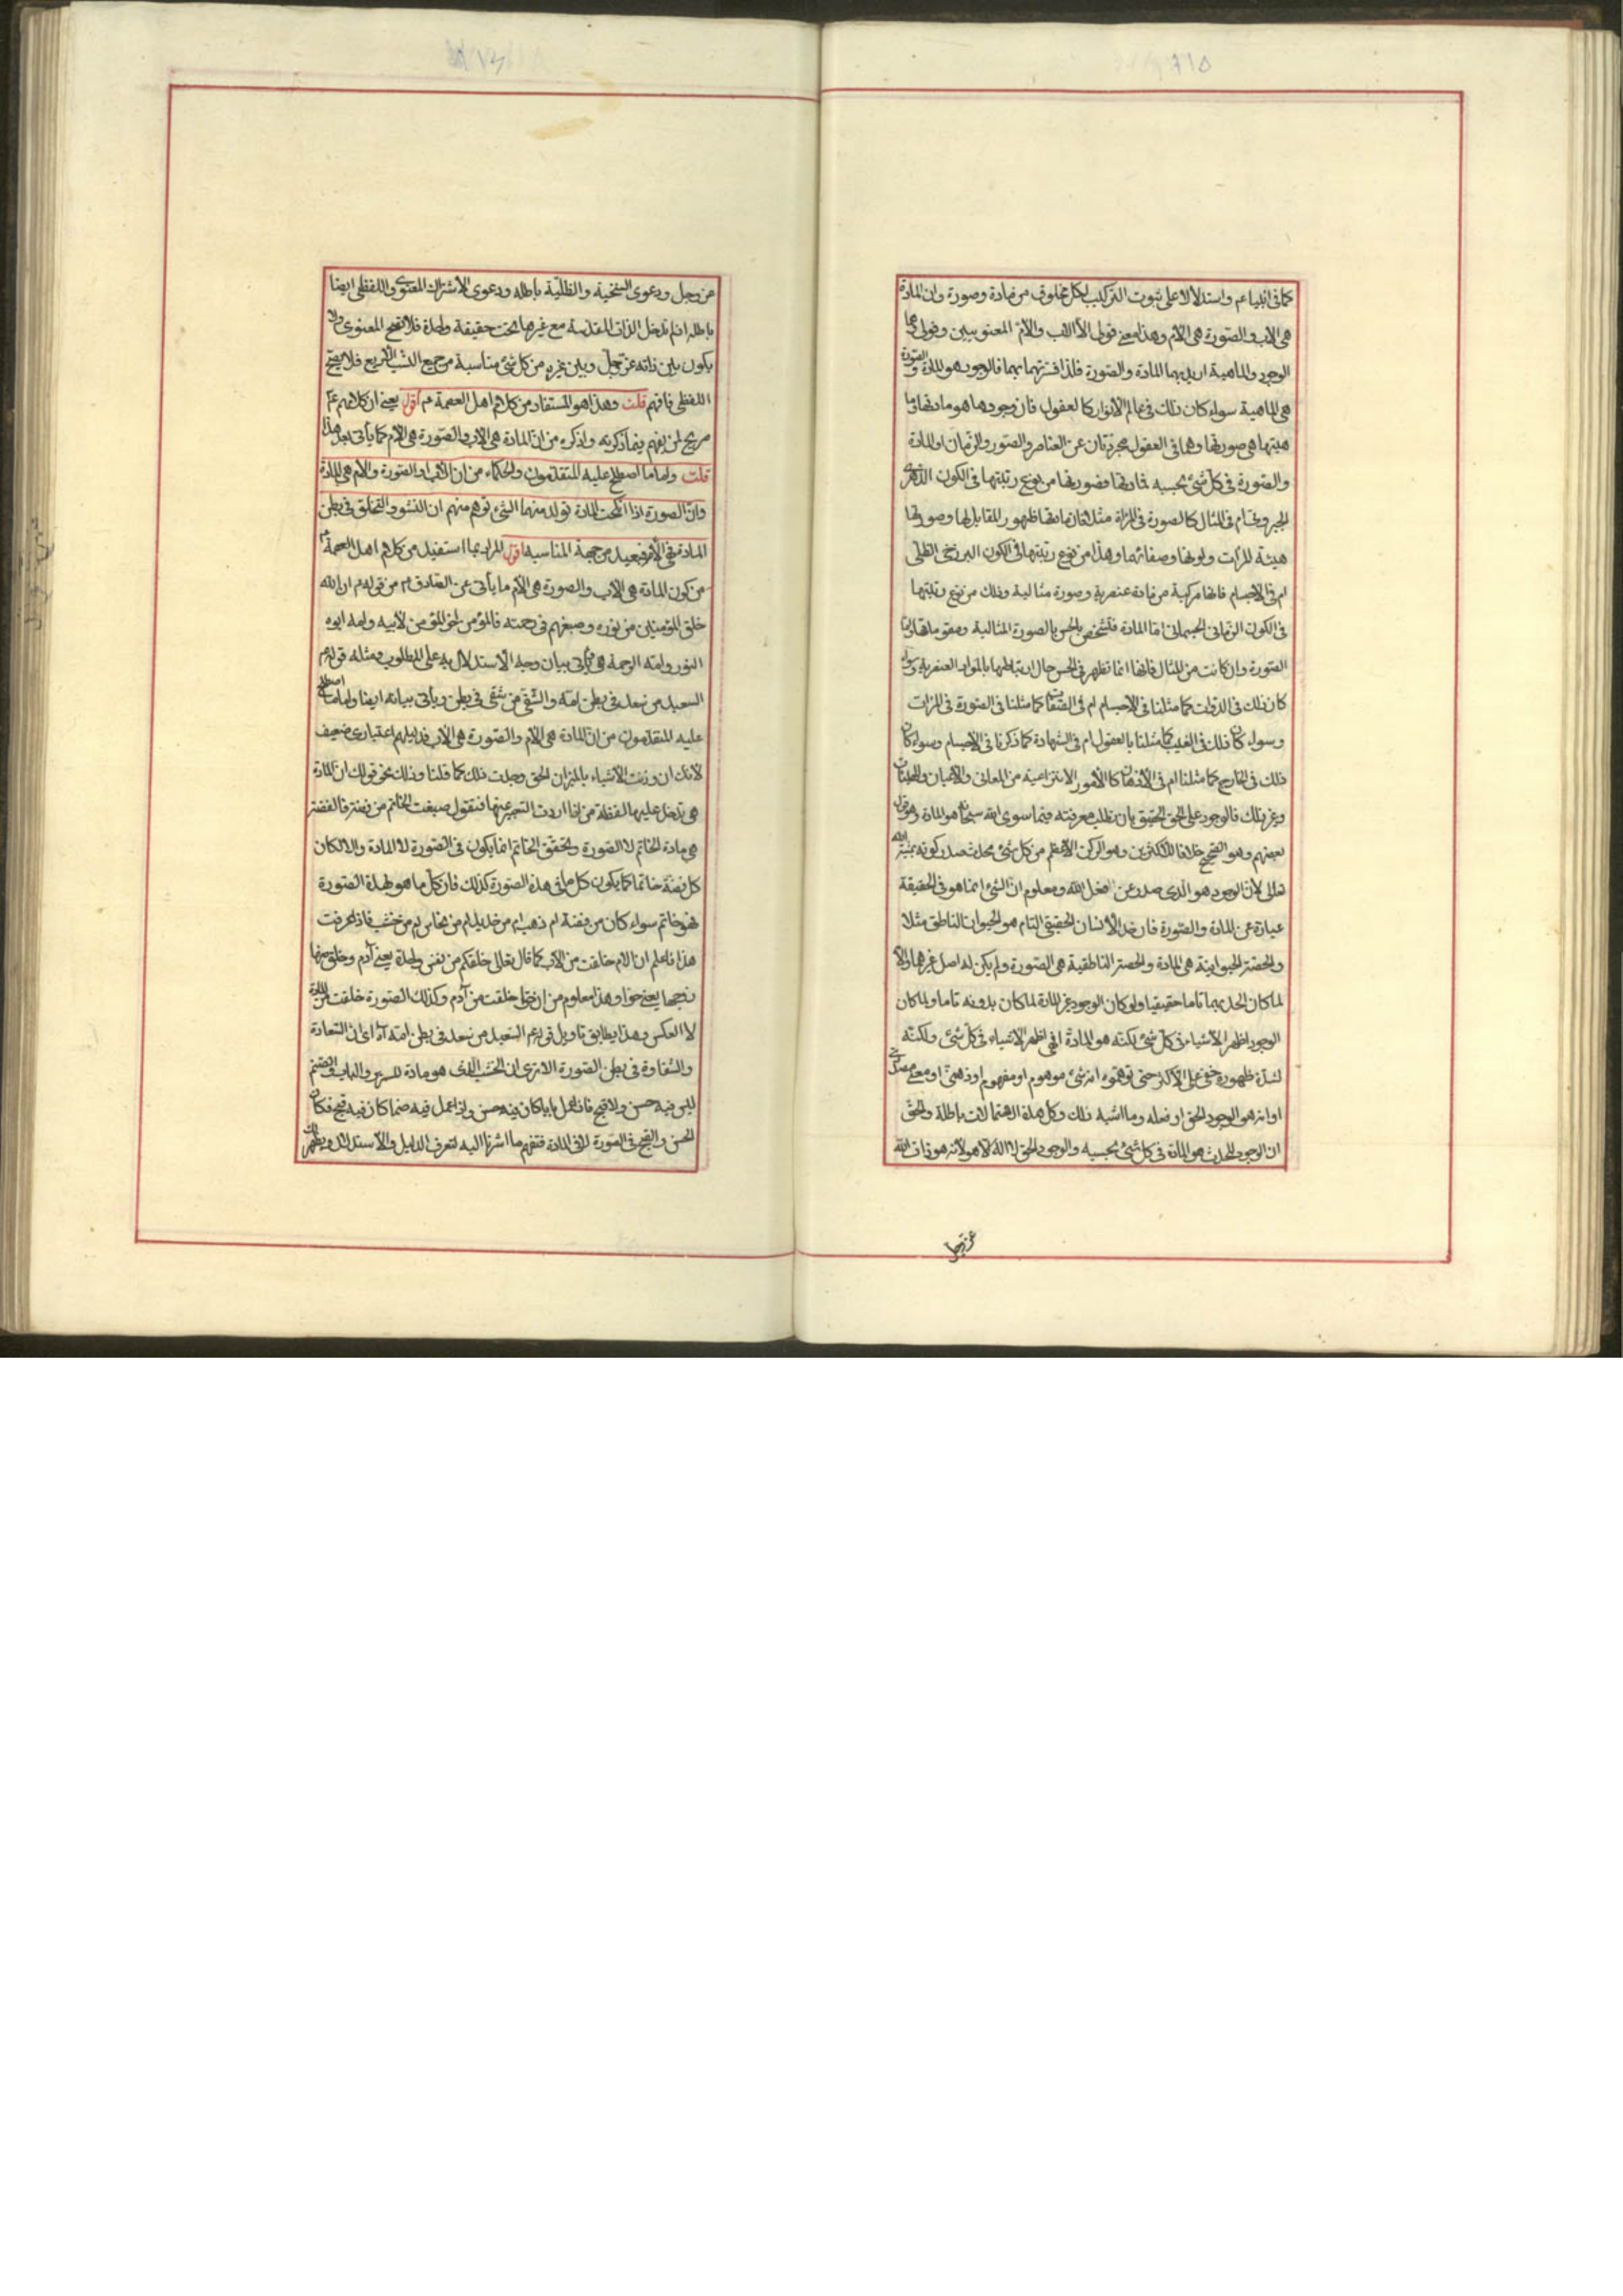 كما في انبياءهم واستدلالا على ثبوت التركيب لكل مخلوق من مادة وصورة وان المادة
هي الاب والصورة هي الام وهذا معنى قولى الاالاب والام المعنويين وقولى هما
الوجود والماهية اريد بهما المادة والصورة فلذا فسّرتهما بهما فالوجود هو المادة والصورة
هي الماهية سواء كان ذلك في عالم الانوار كالعقول فان وجودها هو مادتها وما
هيتها هي صورتها وهما في العقول مجردتان عن العناصر والصور والزمان او المادة
والصورة في كل شئ بحسبه فمادتها وصورتها من نوع رتبتها في الكون الدهرى
الجبروتى ام في المثال كالصورة في المرآة مثلا فان مادتها ظهور المقابل لها وصورتها
هيئة المرآت ولونها وصفائها وهذا من نوع رتبتها في الكون البرزخى الظلى
ام في الاجسام فانها مركبة من مادة عنصرية وصورة مثالية وذلك من نوع رتبتها
في الكون الزمانى الجسمانى امّا المادة فتشخص بالحس بالصورة المثالية ومقوماتها وامّا
الصورة وان كانت من المثال فانها انما تظهر في الحس حال ارتباطها بالمواد العنصرية وسواء
كان ذلك في الذوات كما مثلنا في الاجسام ام في الصفات كما مثلنا في الصورة في المرآت
وسواء كان ذلك في الغيب كما مثلنا بالعقول ام في الشهادة كما ذكرنا في الاجسام وسواء كان
ذلك في الخارج كما مثلنا ام في الاذهان كالامور الانتزاعية من المعانى والاعيان
وغير ذلك فالوجود على الحق الحقيق بان تطلب معرفته فيما سوى الله سبحانه هو المادة وهو قول
بعضهم وهو الصحيح خلافا للاكثرين وهو الركن الاعظم من كل شئ محدث صدر كونه بمشية الله
تعالى لان الوجود هو الذى صدر عن فعل الله ومعلوم ان الشئ انما هو في الحقيقة
عبارة عن المادة والصورة فان حد الانسان الحقيقى التام هو الحيوان الناطق مثلا
والحصة الحيوانية هي المادة والحصة الناطقية هي الصورة ولم يكن له اصل غيرهما والا
لما كان الحد بهما تاما حقيقيا ولو كان الوجود غير المادة لما كان بدونه تاما ولما كان
الوجود اظهر الاشياء في كل شئ لكنه هو المادة اذ هي اظهر الاشياء في كل شئ ولكنّه
لشدة ظهوره خفى على الاكثر حتى توهموا انه شئ موهوم او مفهوم او ذهنى او معنى مصدرى
او انه هو الوجود الحق او فعله وما اشبه ذلك وكل هذه الاحتمالات باطلة والحق
ان الوجود المحدث هو المادة في كل شئ بحسبه والوجود الحق لا اله الا هو لانه هو ذات الله
عز وجل
عز وجل ودعوى السنخية والظلّية باطله ودعوى الاشتراك المعنوى واللفظى ايضا
باطله اذ لم تدخل الذات المقدسة مع غيرها تحت حقيقة واحدة فلا يصح المعنوى ولا
يكون بين ذاته عز وجل وبين غيره من كل شئ مناسبة من جميع النسب الاربع فلا يصح
اللفظى فافهم قلت وهذا هو المستفاد من كلام اهل العصمة م اقول يعنى ان كلامهم عم
صريح لمن يفهم فيما ذكرته واذكره من ان المادة هي الاب والصورة هي الام كما يأتى بعد هذا
قلت واما ما اصطلح عليه المتقدمون والحكماء من ان الاب هو الصورة والام هي المادة
وان الصورة اذا نكحت المادة تولد منهما الشئ توهم منهم ان النشو والتخلق في بطن
المادة هي الام فبعيد من جهة المناسبة اقول المراد بما استفيد من كلام اهل العصمة م
من كون المادة هي الاب والصورة هي الام ما يأتى عن الصادق م من قوله م ان الله
خلق المؤمنين من نوره وصبغهم في رحمته فالمؤمن اخو المؤمن لابيه وامه ابوه
النور وامّه الرحمة ويأتى بيان وجه الاستدلال به على المطلوب ومثله قولهم
السعيد من سعد في بطن امه والشقى من شقى في بطن ويأتى بيانه ايضا واما ما اصطلح
عليه المتقدمون من ان المادة هي الام والصورة هي الاب فدليلهم اعتبارى ضعيف
لانك ان وزنت الاشياء بالميزان الحق وجدت ذلك كما قلنا وذلك نحو قولك ان المادة
هي تدخل عليها لفظة من اذا اردت التعبير عنها فتقول صيغت الخاتم من فضة فالفضة
هي مادة الخاتم لا الصورة وتحقق الخاتم انما يكون في الصورة لا المادة والا لكان
كل فضة خاتما كما يكون كل ما في هذه الصورة كذلك فان كل ما هو لهذه الصورة
فهو خاتم سواء كان من فضة ام ذهب ام من حديد ام من نحاس ام من خشب فاذا عرفت
هذا فاعلم ان الام خلقت من الاب كما قال تعالى خلقكم من نفس واحدة يعنى آدم وخلق منها
زوجها يعنى حوا وهذا معلوم من ان حوا خلقت من آدم وكذلك الصورة خلقت من المادة
لا العكس وهذا يطابق تاويل قولهم السعيد من سعد في بطن امّه اى ان السعادة
والشقاوة في بطن الصورة الا ترى ان الخشب الذى هو مادة للسرير والباب والصنم
ليس فيه حسن ولا قبح فاذا عمل بابا كان فيه حسن واذا عمل فيه صنما كان فيه قبح فكان
الحسن والقبح في الصورة لا في المادة فتفهم ما اشرنا اليه لتعرف الدليل والاستدلال ويظهر لك